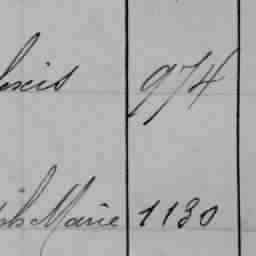 lexis 974
ph Marie 1130